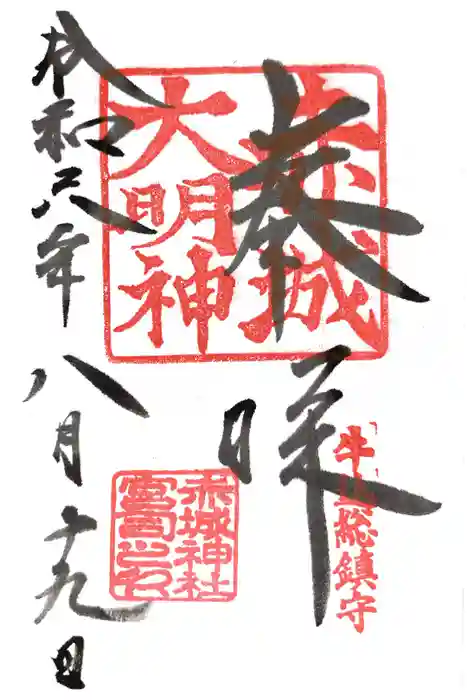 牛込総鎮守
奉拝
赤城
大明神
赤城神社
宮司之印
令和六年八月十九日